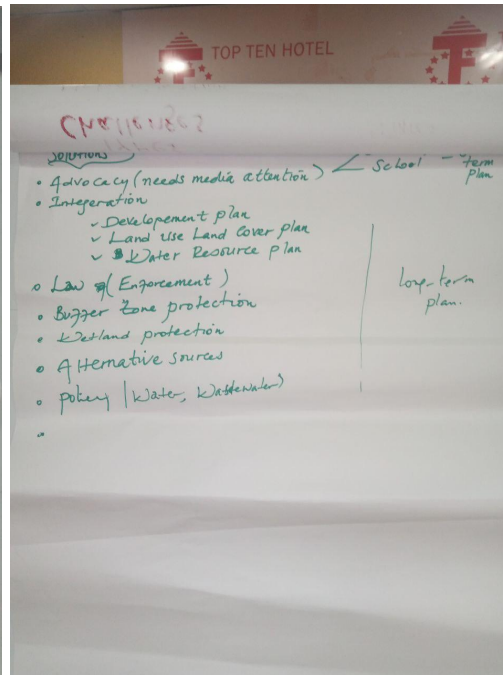 TOP TEN HOTEL
Challenges
Solutions
• Advocacy (needs media attention) < School - term plan
• Integeration
✓ Developement plan
✓ Land Use Land Cover plan
✓ Water Resource plan
• Law (Enforcement)
• Buffer Zone protection
• Wetland protection
• Alternative sources
• policy (Water, Wastewater)
•
long-term
plan.